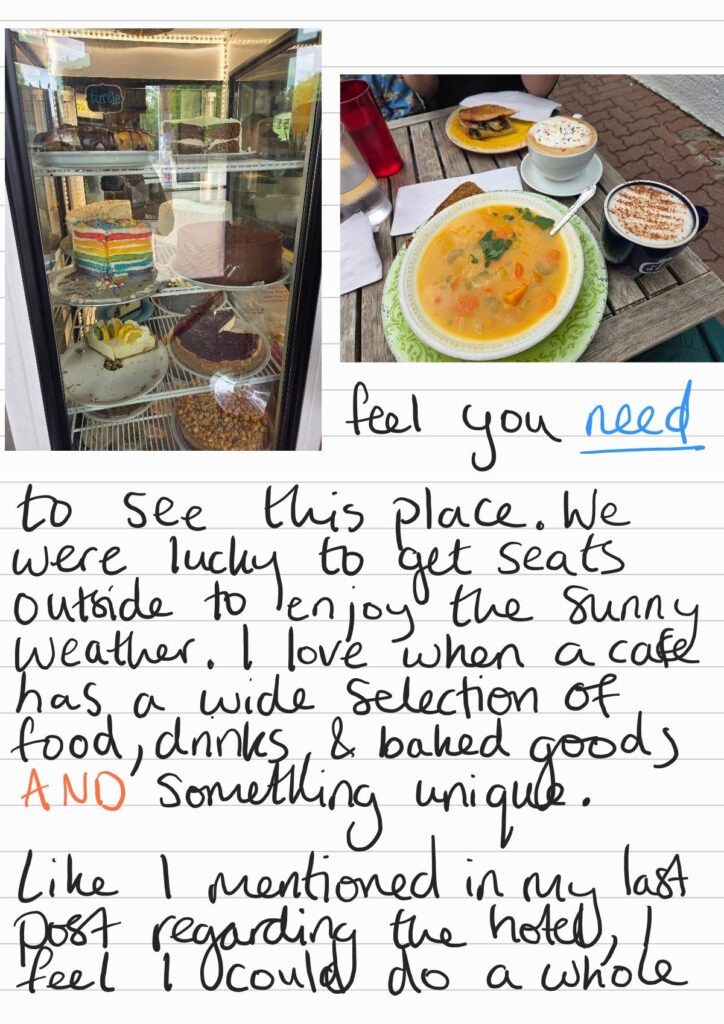 turtle
feel you need
to see this place. We
were lucky to get seats
outside to enjoy the sunny
weather. I love when a cafe
has a wide selection of
food, drinks & baked goods
AND something unique.
Like I mentioned in my last
post regarding the hotel, I
feel I could do a whole